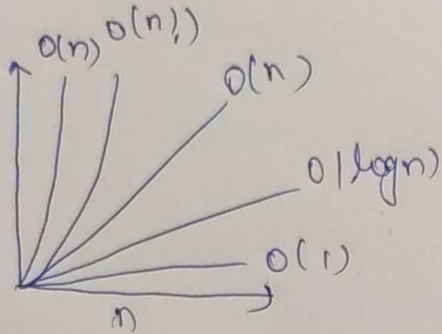 O(n) O(n!)
O(n)
O(logn)
O(1)
n